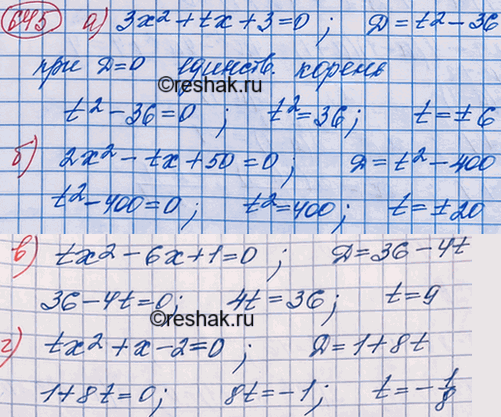 645 а) 3x² + tx + 3 = 0 ; Д = t² − 36
при Д=0 единств. корень
©reshak.ru
t² − 36 = 0 ; t² = 36 ; t = ± 6
б) 2x² − tx + 50 = 0 ; Д = t² − 400
t² − 400 = 0 ; t² = 400 ; t = ± 20
в) tx² − 6x + 1 = 0 ; Д = 36 − 4t
36 − 4t = 0 ; 4t = 36 ; t = 9
©reshak.ru
г) tx² + x − 2 = 0 ; Д = 1 + 8t
1 + 8t = 0 ; 8t = −1 ; t = − 1/8